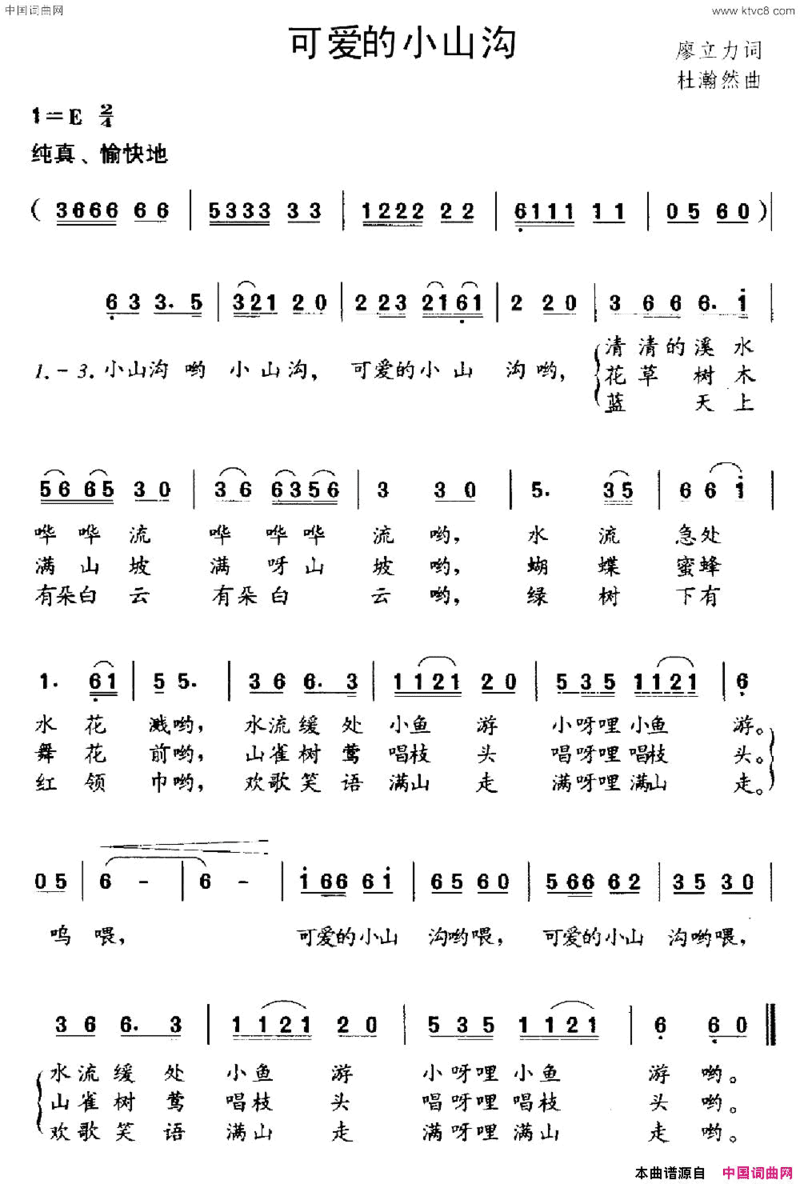 中国词曲网
www.ktvc8.com
可爱的小山沟
廖立力词
杜瀚然曲
1=E 2/4
纯真、愉快地
(3666 6 6 | 5333 3 3 | 1222 2 2 | 6111 1 1 | 0 5 6 0)|
6 3 3. 5 | 321 2 0 | 2 23 2161 | 2 2 0 | 3 6 6 6. i |
1.-3.小山沟 哟 小 山 沟, 可爱的小 山 沟 哟, 清 清 的 溪 水
花 草 树 木
蓝 天 上
56 65 3 0 | 3 6 6356 | 3 3 0 | 5. 35 | 6 6 i |
哗 哗 流 哗 哗 哗 流 哟, 水 流 急处
满 山 坡 满 呀 山 坡 哟, 蝴 蝶 蜜蜂
有朵白 云 有朵 白 云 哟, 绿 树 下有
1. 61 | 5 5. | 3 6 6. 3 | 1121 2 0 | 5 35 1121 | 6
水 花 溅哟, 水流缓 处 小鱼 游 小呀哩 小鱼 游。
舞 花 前哟, 山雀树 莺 唱枝 头 唱呀哩 唱枝 头。
红 领 巾哟, 欢歌笑 语 满山 走 满呀哩 满山 走。
0 5 | 6 - | 6 - | i 66 6 i | 6 5 6 0 | 5 66 6 2 | 3 5 3 0 |
呜 喂, 可爱的小山 沟哟喂, 可爱的小山 沟哟喂,
3 6 6. 3 | 1121 2 0 | 5 35 1121 | 6 6 0 ‖
水 流 缓 处 小 鱼 游 小 呀哩 小 鱼 游 哟。
山 雀 树 莺 唱 枝 头 唱 呀哩 唱枝 头 哟。
欢 歌 笑 语 满 山 走 满 呀哩 满 山 走 哟。
本曲谱源自 中国词曲网